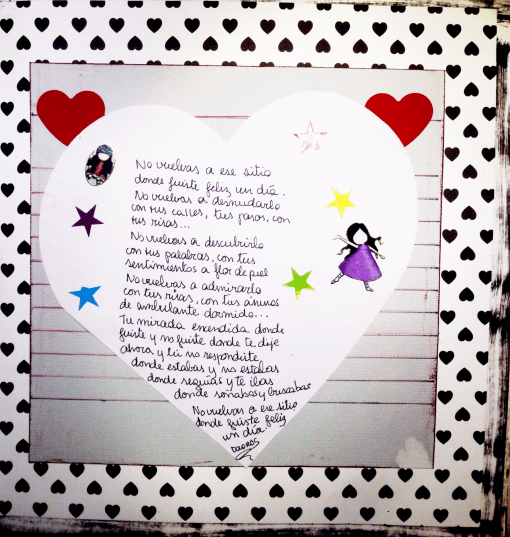 No vuelvas a ese sitio
donde fuiste feliz un día.
No vuelvas a desnudarlo
con tus calles, tus pasos, con
tus risas...
No vuelvas a descubrirlo
con tus palabras, con tus
sentimientos a flor de piel
No vuelvas a admirarlo
con tus risas, con tus ánimos
de ambulante dormido...
Tu mirada encendida donde
fuiste y no fuiste donde te dije
ahora, y tú no respondiste,
donde estabas y no estabas
donde seguías y te ibas
donde soñabas y buscabas
No vuelvas a ese sitio
donde fuiste feliz
un día
DOLORS